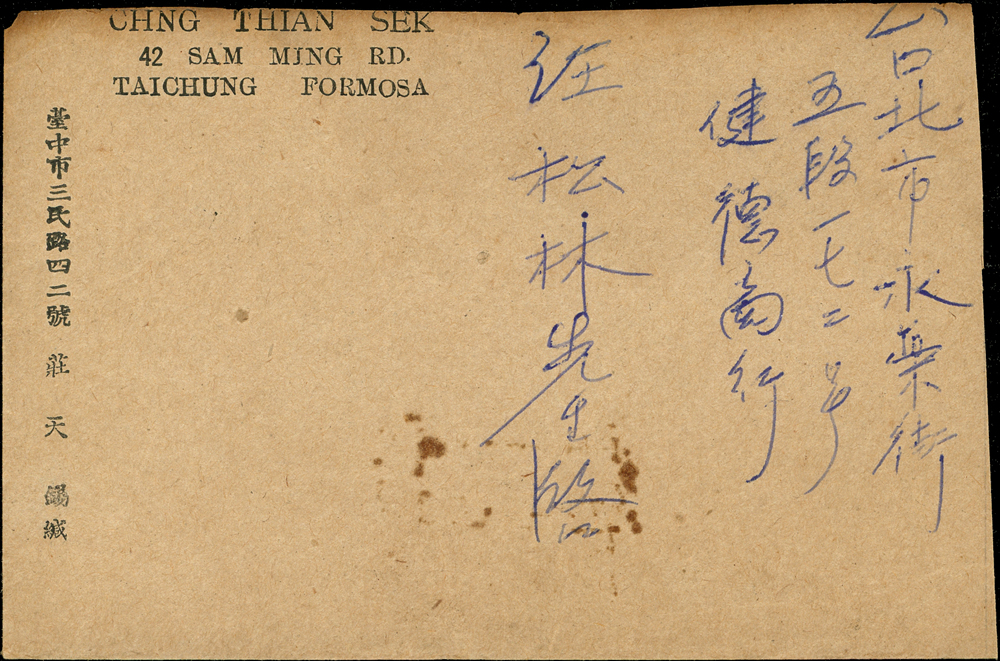 CHNG THIAN SEK
42 SAM MING RD.
TAICHUNG FORMOSA
台北市永樂街
五段一七二号
健德商行
汪松林先生啓
臺中市三民路四二號 莊天錫緘